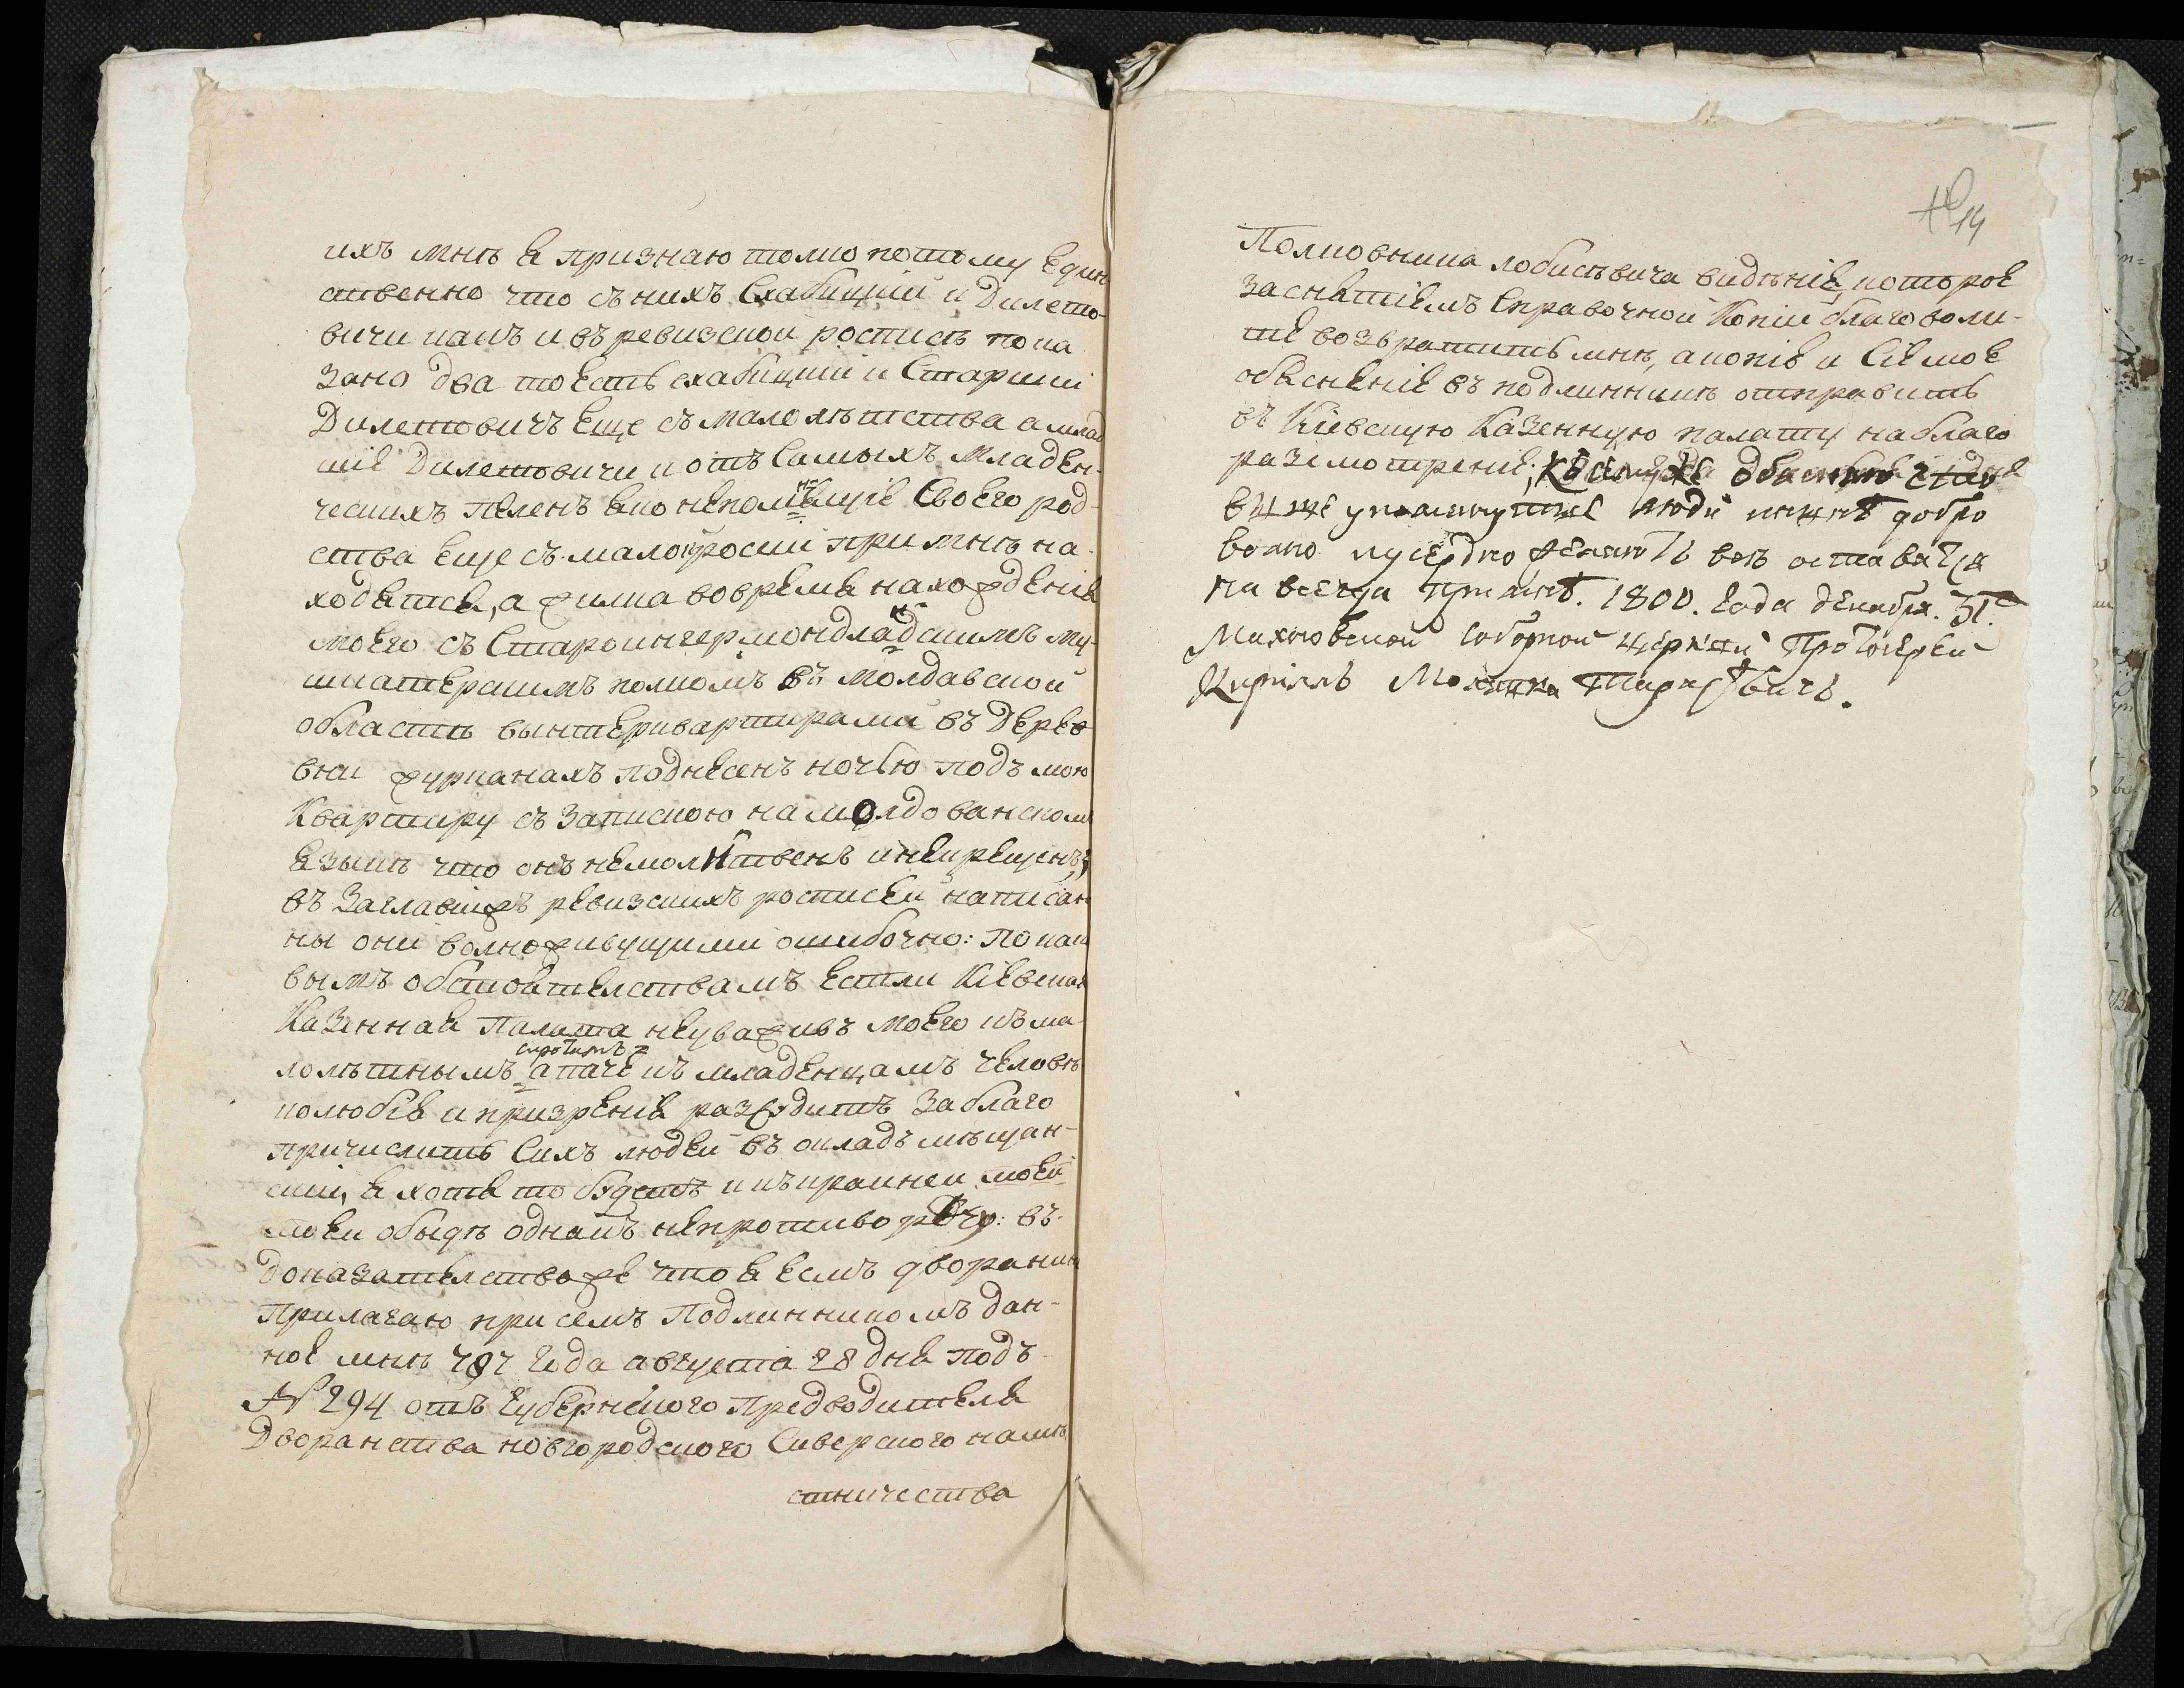 ихъ мнѣ я признаю толко потому един
ственно что съ нихъ Скабицкій и Дилето-
вичи какъ и въ ревизской росписѣ пока
зано два тоесть скабицкій и Старшій
Дилетовичъ еще съ малолѣтства а млад
шіе Дилетовичи и отъ самыхъ младен-
ческихъ пеленъ яко непомнящіе своего род-
ства еще съ малоїросіи при мнѣ на-
ходятся, а филка вовремя нахожденія
моего съ Староингермонландскимъ му-
шкатерскимъ полкомъ въ молдавской
области вынтерквартирами въ дерев
вни фурманахъ поднесенъ ночью подъ мою
Квартиру съ запискою на молдованском
языкѣ что онъ немолитвенъ и некрещенъ;
въ Заглавіижъ ревизскихъ росписей написан
ны они волноживущими ошибочно: По како
вымъ обстоятелствамъ естли Кіевская
Казенная Палата неуваживъ моего къ ма-
сиротамъ
лолѣтнымъ апаче къ младенцамъ человѣ
колюбія и призренія разсудитъ Заблаго
причислить сихъ людей въ окладъ мѣщан-
скій, я хотя то будетъ и къ крайней моей
моей обыдѣ однакъ непротиворѣчу: въ
доказателствоже что я есмъ дворанин
Прилагаю при семъ Подлинникомъ дан-
ное мнѣ 797 года августа 28 дня подъ
№ 294 отъ Губернскаго Предводителя
Дворанства новгородского Сиверского намѣ
стничества
14
Полковника лобисѣвича видѣніе, которое
заснятіемъ справочной Копіи благоволи-
те возвратить мнѣ, а копію и сіе мое
обясненіе въ подлинникѣ отправить
въ Кіевскую Казенную палату на благо
разсмотреніе;
више упомянутые люди
волно и усердно желаютъ
на всегда при мнѣ. 1800. года декабря. 31.
Махновской соборной церкви Протоіерей
Кириллъ